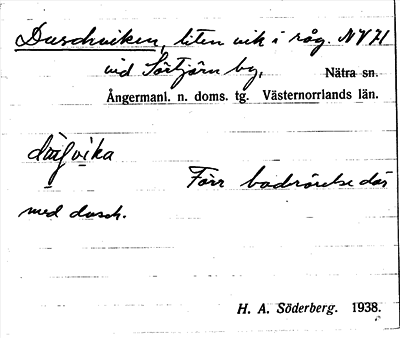 Duschviken, liten vik i råg. NV 71
vid Sörtjärn by, Nätra sn.
Ångermanl. n. doms. tg. Västernorrlands län.
Förr badrörelse där
med dusch.
H. A. Söderberg. 1938.